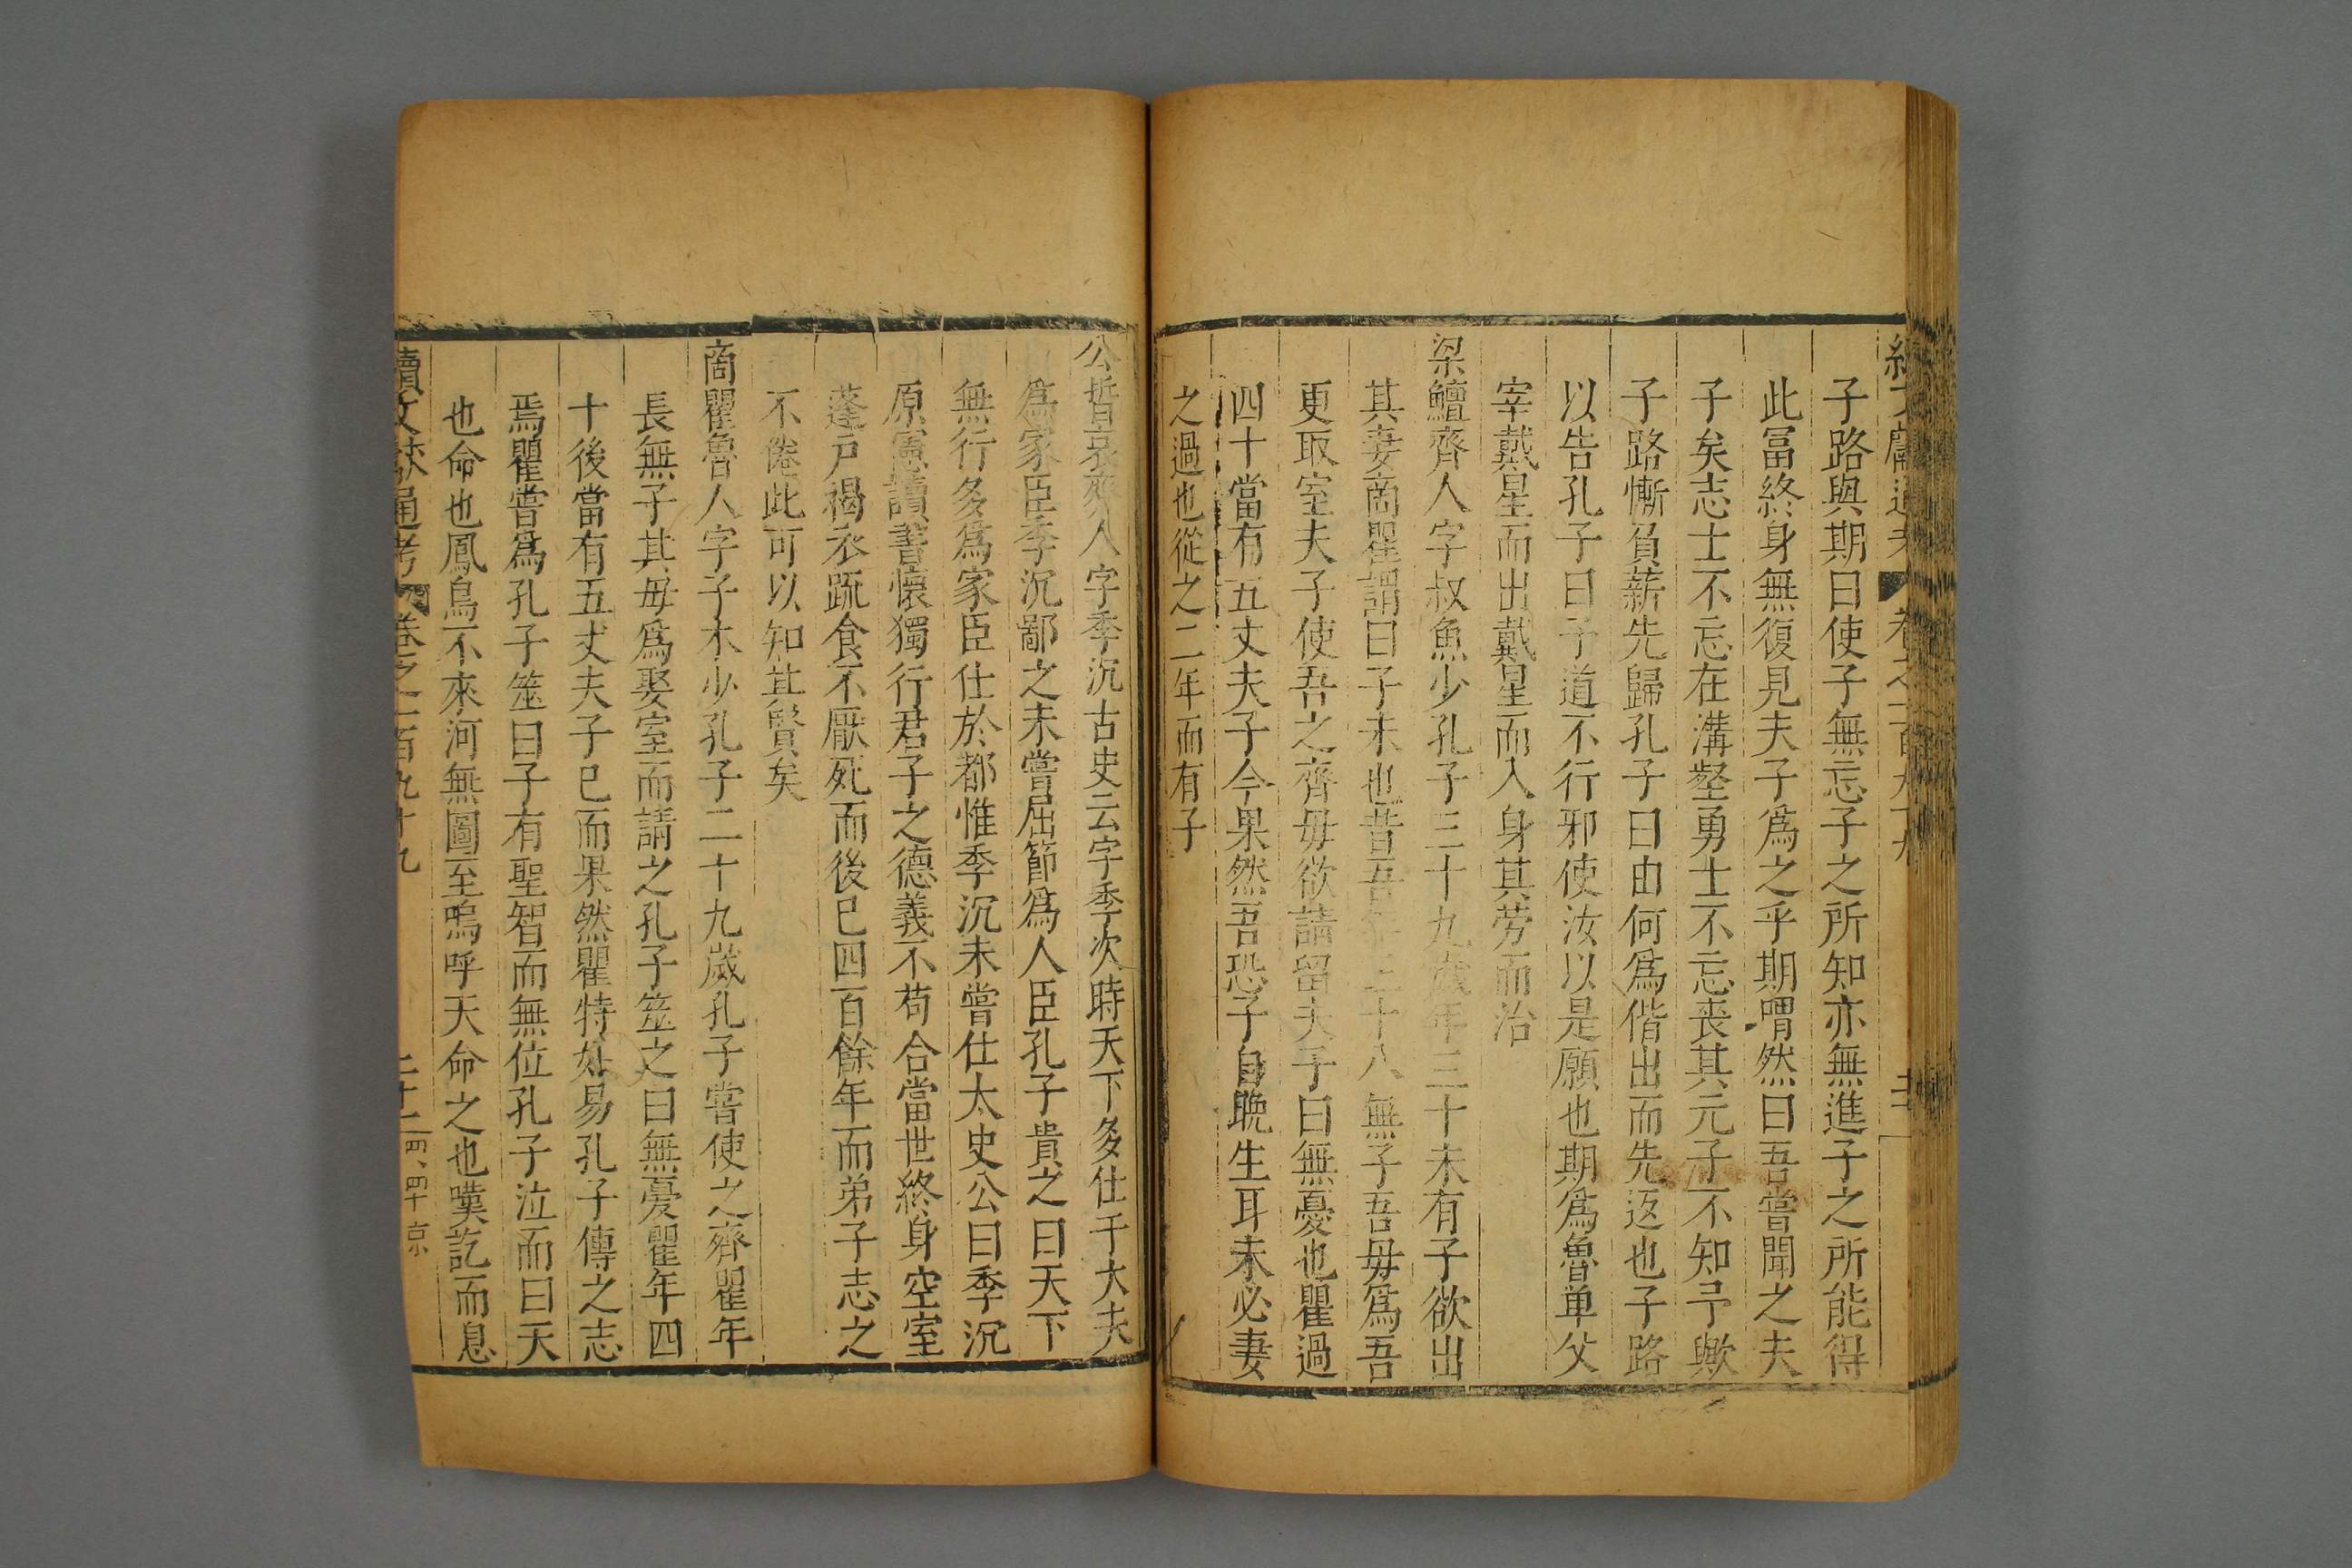 子路與期曰使子無忘子之所知亦無進子之所能得
此冨終身無復見夫子爲之乎期喟然曰吾嘗聞之夫
子矣志士不忘在溝壑勇士不忘喪其元子不知予歟
子路慚負薪先歸孔子曰由何爲偕出而先返也子路
以告孔子曰予道不行邪使汝以是願也期爲魯単父
宰戴星而出戴星而入身其劳而治
梁鱣齊人字叔魚少孔子三十九歲年三十未有子欲出
其妻商瞿謂曰子未也昔吾年三十八無子吾毋爲吾
更取室夫子使吾之齊毋欲請留夫子曰無憂也瞿過
四十當有五丈夫子今果然吾恐子自晚生耳未必妻
之過也從之二年而有子
公晳哀齊人字季沉古史云字季次時天下多仕于大夫
爲家臣季沉鄙之未嘗屈節爲人臣孔子貴之曰天下
無行多爲家臣仕於都惟季沉未嘗仕太史公曰季沉
原憲讀書懷獨行君子之德義不苟合當世終身空室
蓬戸褐衣䟽食不厭死而後已四百餘年而弟子志之
不倦此可以知其賢矣
商瞿魯人字子木少孔子二十九歲孔子嘗使之齊瞿年
長無子其毋爲娶室而請之孔子筮之曰無憂瞿年四
十後當有五丈夫子已而果然瞿特好易孔子傳之志
焉瞿嘗爲孔子筮曰子有聖智而無位孔子泣而曰天
也命也鳳鳥不來河無圖至嗚呼天命之也嘆訖而息
續文獻通考 卷之一百九十九 二十二